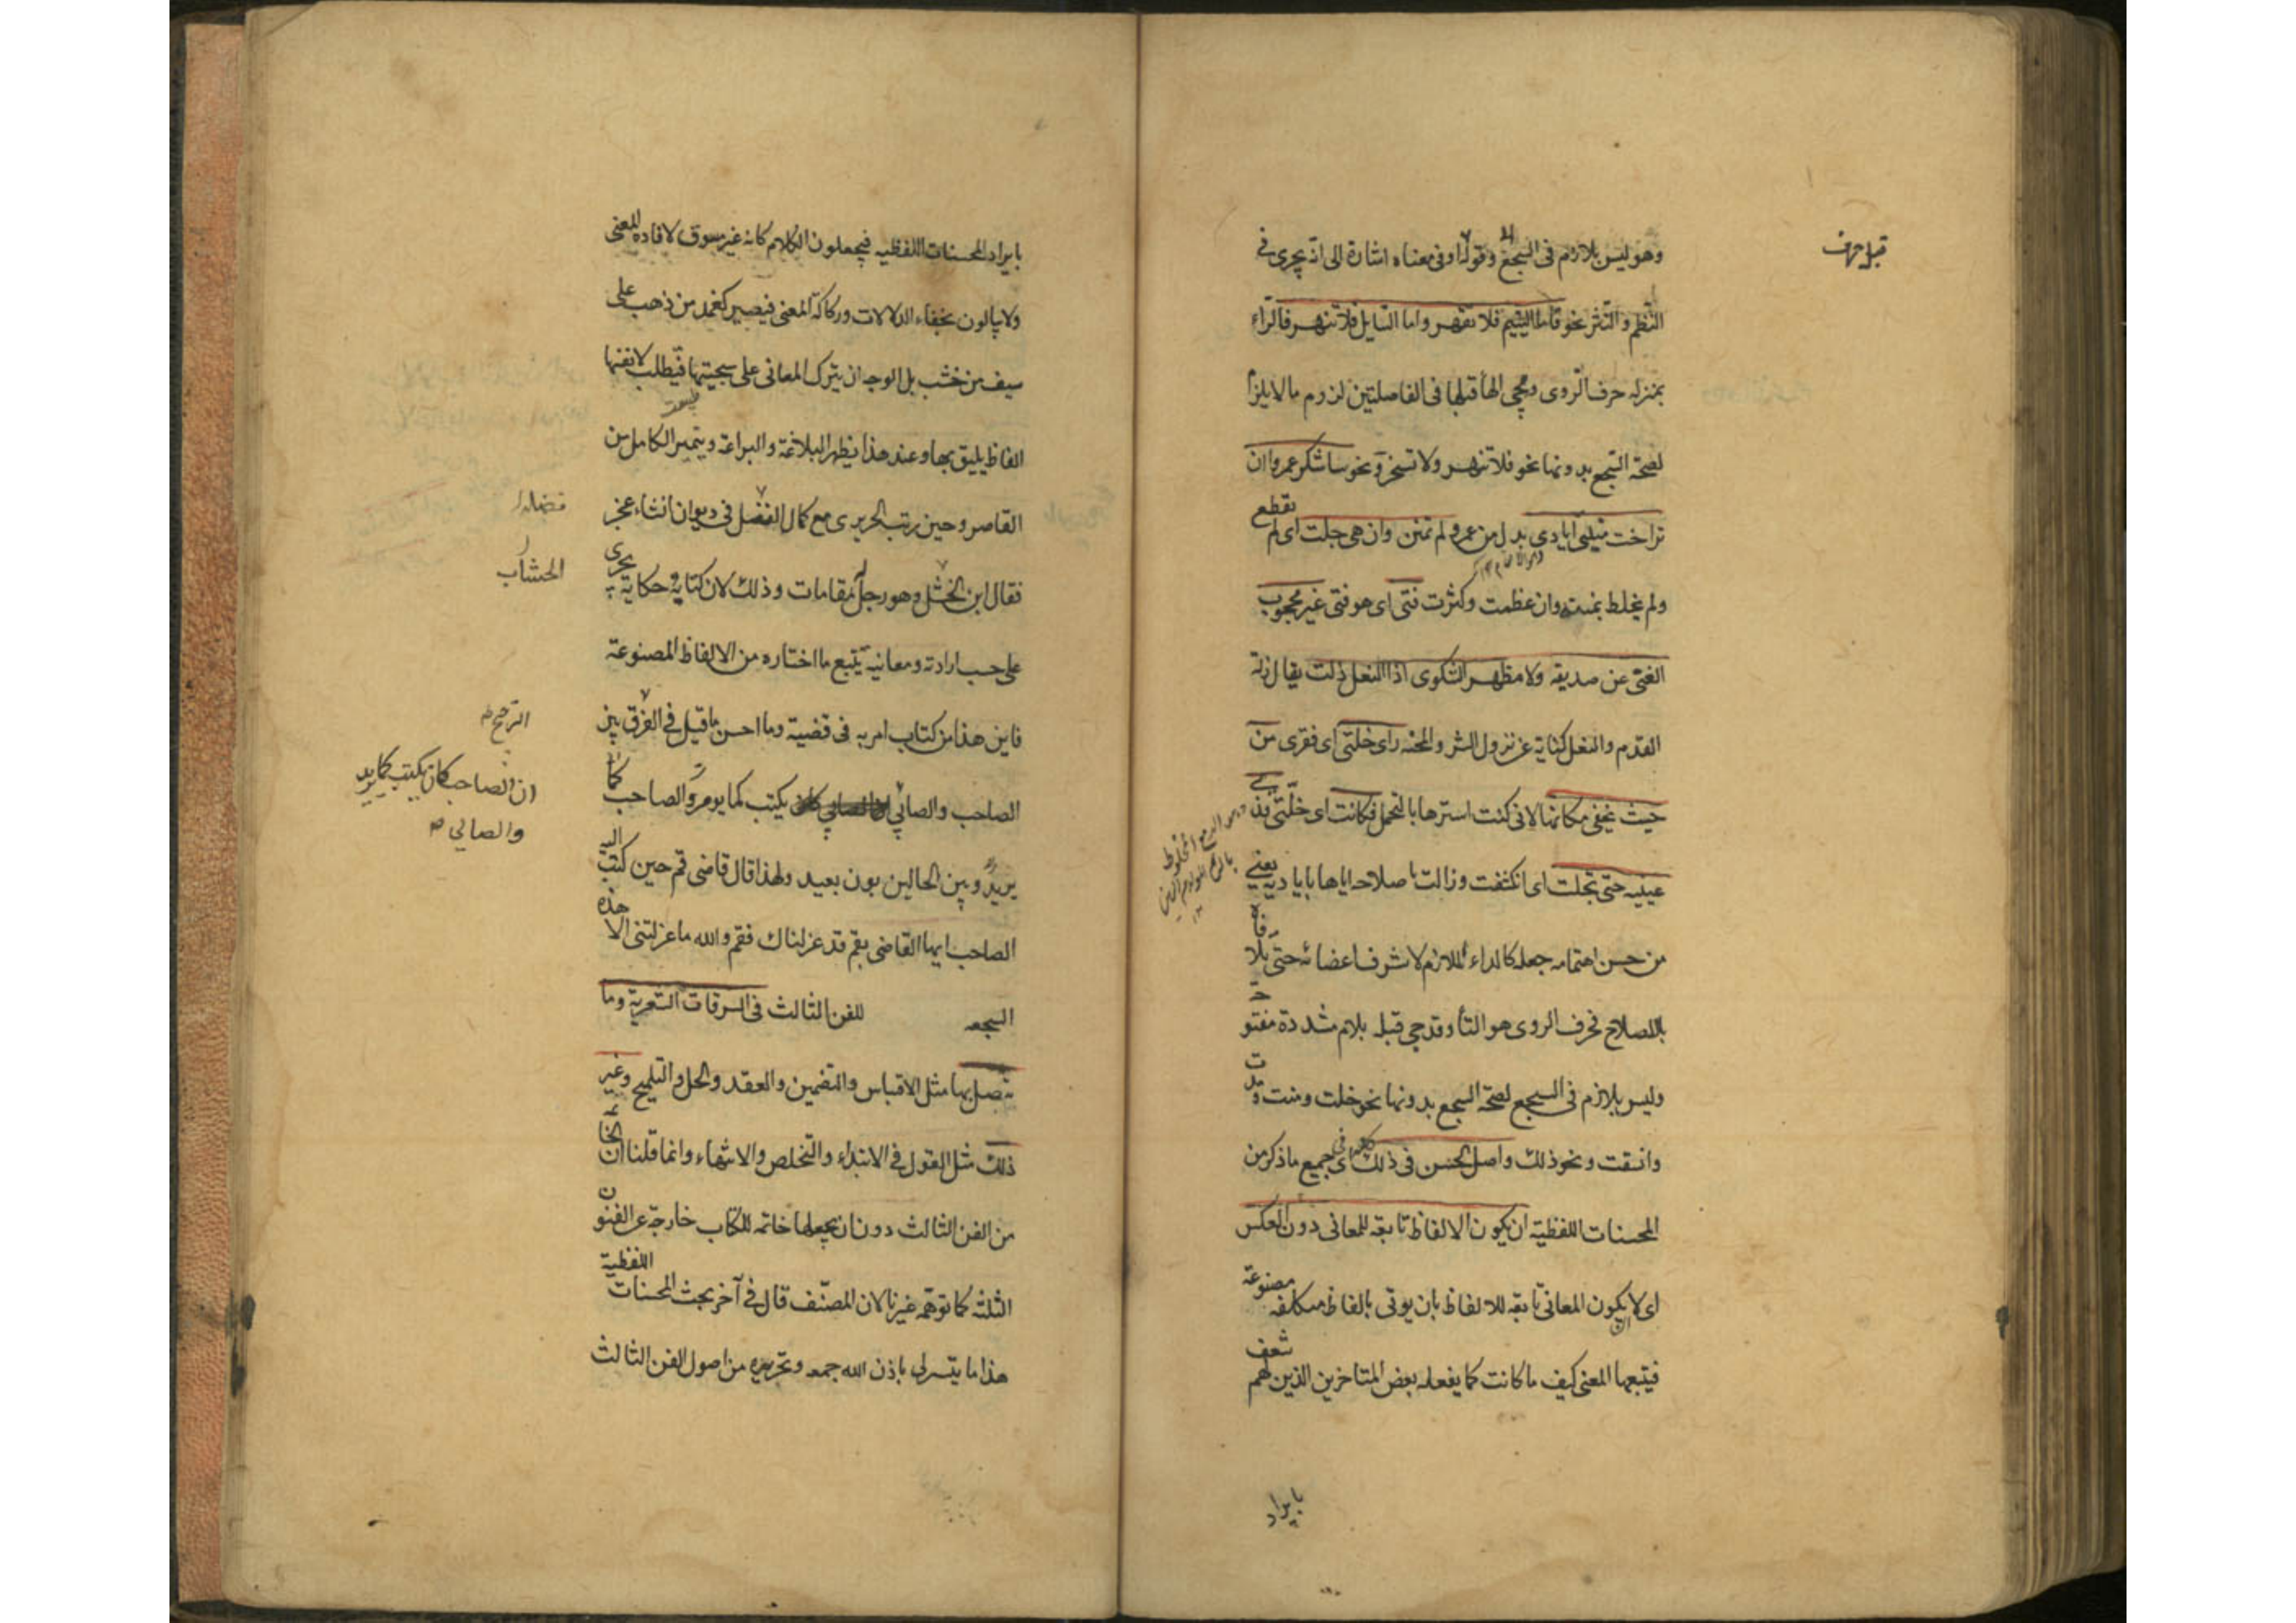 قبل حرف
وهو ليس بلازم فى السجع وقوله او فى معناه اشارة الى انه يجرى فى
النظم والنثر نحو فاما اليتيم فلا تقهر واما السايل فلا تنهر فالراء
بمنزله حرف الروى ومجى الهاء قبلها فى الفاصلتين لزوم مالا يلزم
لصحة السجع بدونها نحو فلا تنهر ولا تسخر ونحو ساشكر عمروا ان
تراخت منيتى ايادى بدل من عمرو لم تمنن وان هى جلت اى لم تقطع
ولم يخلط بمنته وان عظمت وكثرت فتى اى هو فتى غير محجوب
الغنى عن صديقه ولا مظهر الشكوى اذا النعل زلت يقال زلة
القدم والنعل كناية عن نزول الشر والمحنه راى خلتى اى فقرى من
حيث يخفى مكانها لانى كنت استرها بالتحمل فكانت اى خلتى قذى
عينيه حتى تجلت اى انكشفت وزالت باصلاحه اياها باياديه يعنى
من حسن اهتمامه جعله كالداء الملازم لاشرف اعضائه حتى تلافاه
بالاصلاح فحرف الروى هو التاء وقد جى قبله بلام مشددة مفتوحة
وليس بلازم فى السجع لصحة السجع بدونها نحو خلت ومنت ومدت
وانشقت ونحو ذلك واصل الحسن فى ذلك كله اى فى جميع ما ذكر من
المحسنات اللفظية ان يكون الالفاظ تابعة للمعانى دون العكس
اى لا ان يكون المعانى تابعه للالفاظ بان يوتى بالفاظ متكلفه مصنوعة
فيتبعها المعنى كيف ما كانت كما يفعله بعض المتاخرين الذين لهم شعف
بايراد
بايراد المحسنات اللفظيه فيجعلون الكلام كانه غير مسوق لافاده المعنى
ولا يبالون بخفاء الدلالات وركاكة المعنى فيصير كغمد من ذهب على
سيف من خشب بل الوجه ان يترك المعانى على سجيتها فيطلب لانفسها
الفاظ يليق بها وعند هذا يظهر البلاغة والبراعة ويتميز الكامل من
القاصر وحين رتب الحريرى مع كمال الفضل فى ديوان انشاء عجز
فضله
فقال ابن الخشل وهو رجل مقامات وذلك لان كتابه حكاية يجرى
الخشاب
على حسب ارادته ومعانيه يتبع ما اختاره من الالفاظ المصنوعة
فاين هذا من كتاب امر به فى قضية وما احسن ما قيل فى الفرق بين
الترجيح
الصاحب والصابى يكتب كما يومر والصاحب كما
ان الصاحب كان يكتب كما يريد
والصابى
يريد وبين الحالين بون بعيد ولهذا قال قاضى قم حين كتب اليه
الصاحب ايها القاضى بقم قد عزلناك فقم والله ما عزلتنى الا هذه
السجعه للفن الثالث فى السرقات الشعرية وما
يتصل بها مثل الاقتباس والتضمين والعقد والحل والتلميح وغير
ذلك مثل القول فى الابتداء والتخلص والانتهاء وانما قلنا ان الخاتمة
من الفن الثالث دون ان يجعلها خاتمه للكتاب خارجة عن الفنون
الثلثه كما توهمه غيرنا لان المصنف قال فى آخر بحث المحسنات اللفظية
هذا ما يتسر لى باذن الله جمعه وتحريره من اصول الفن الثالث